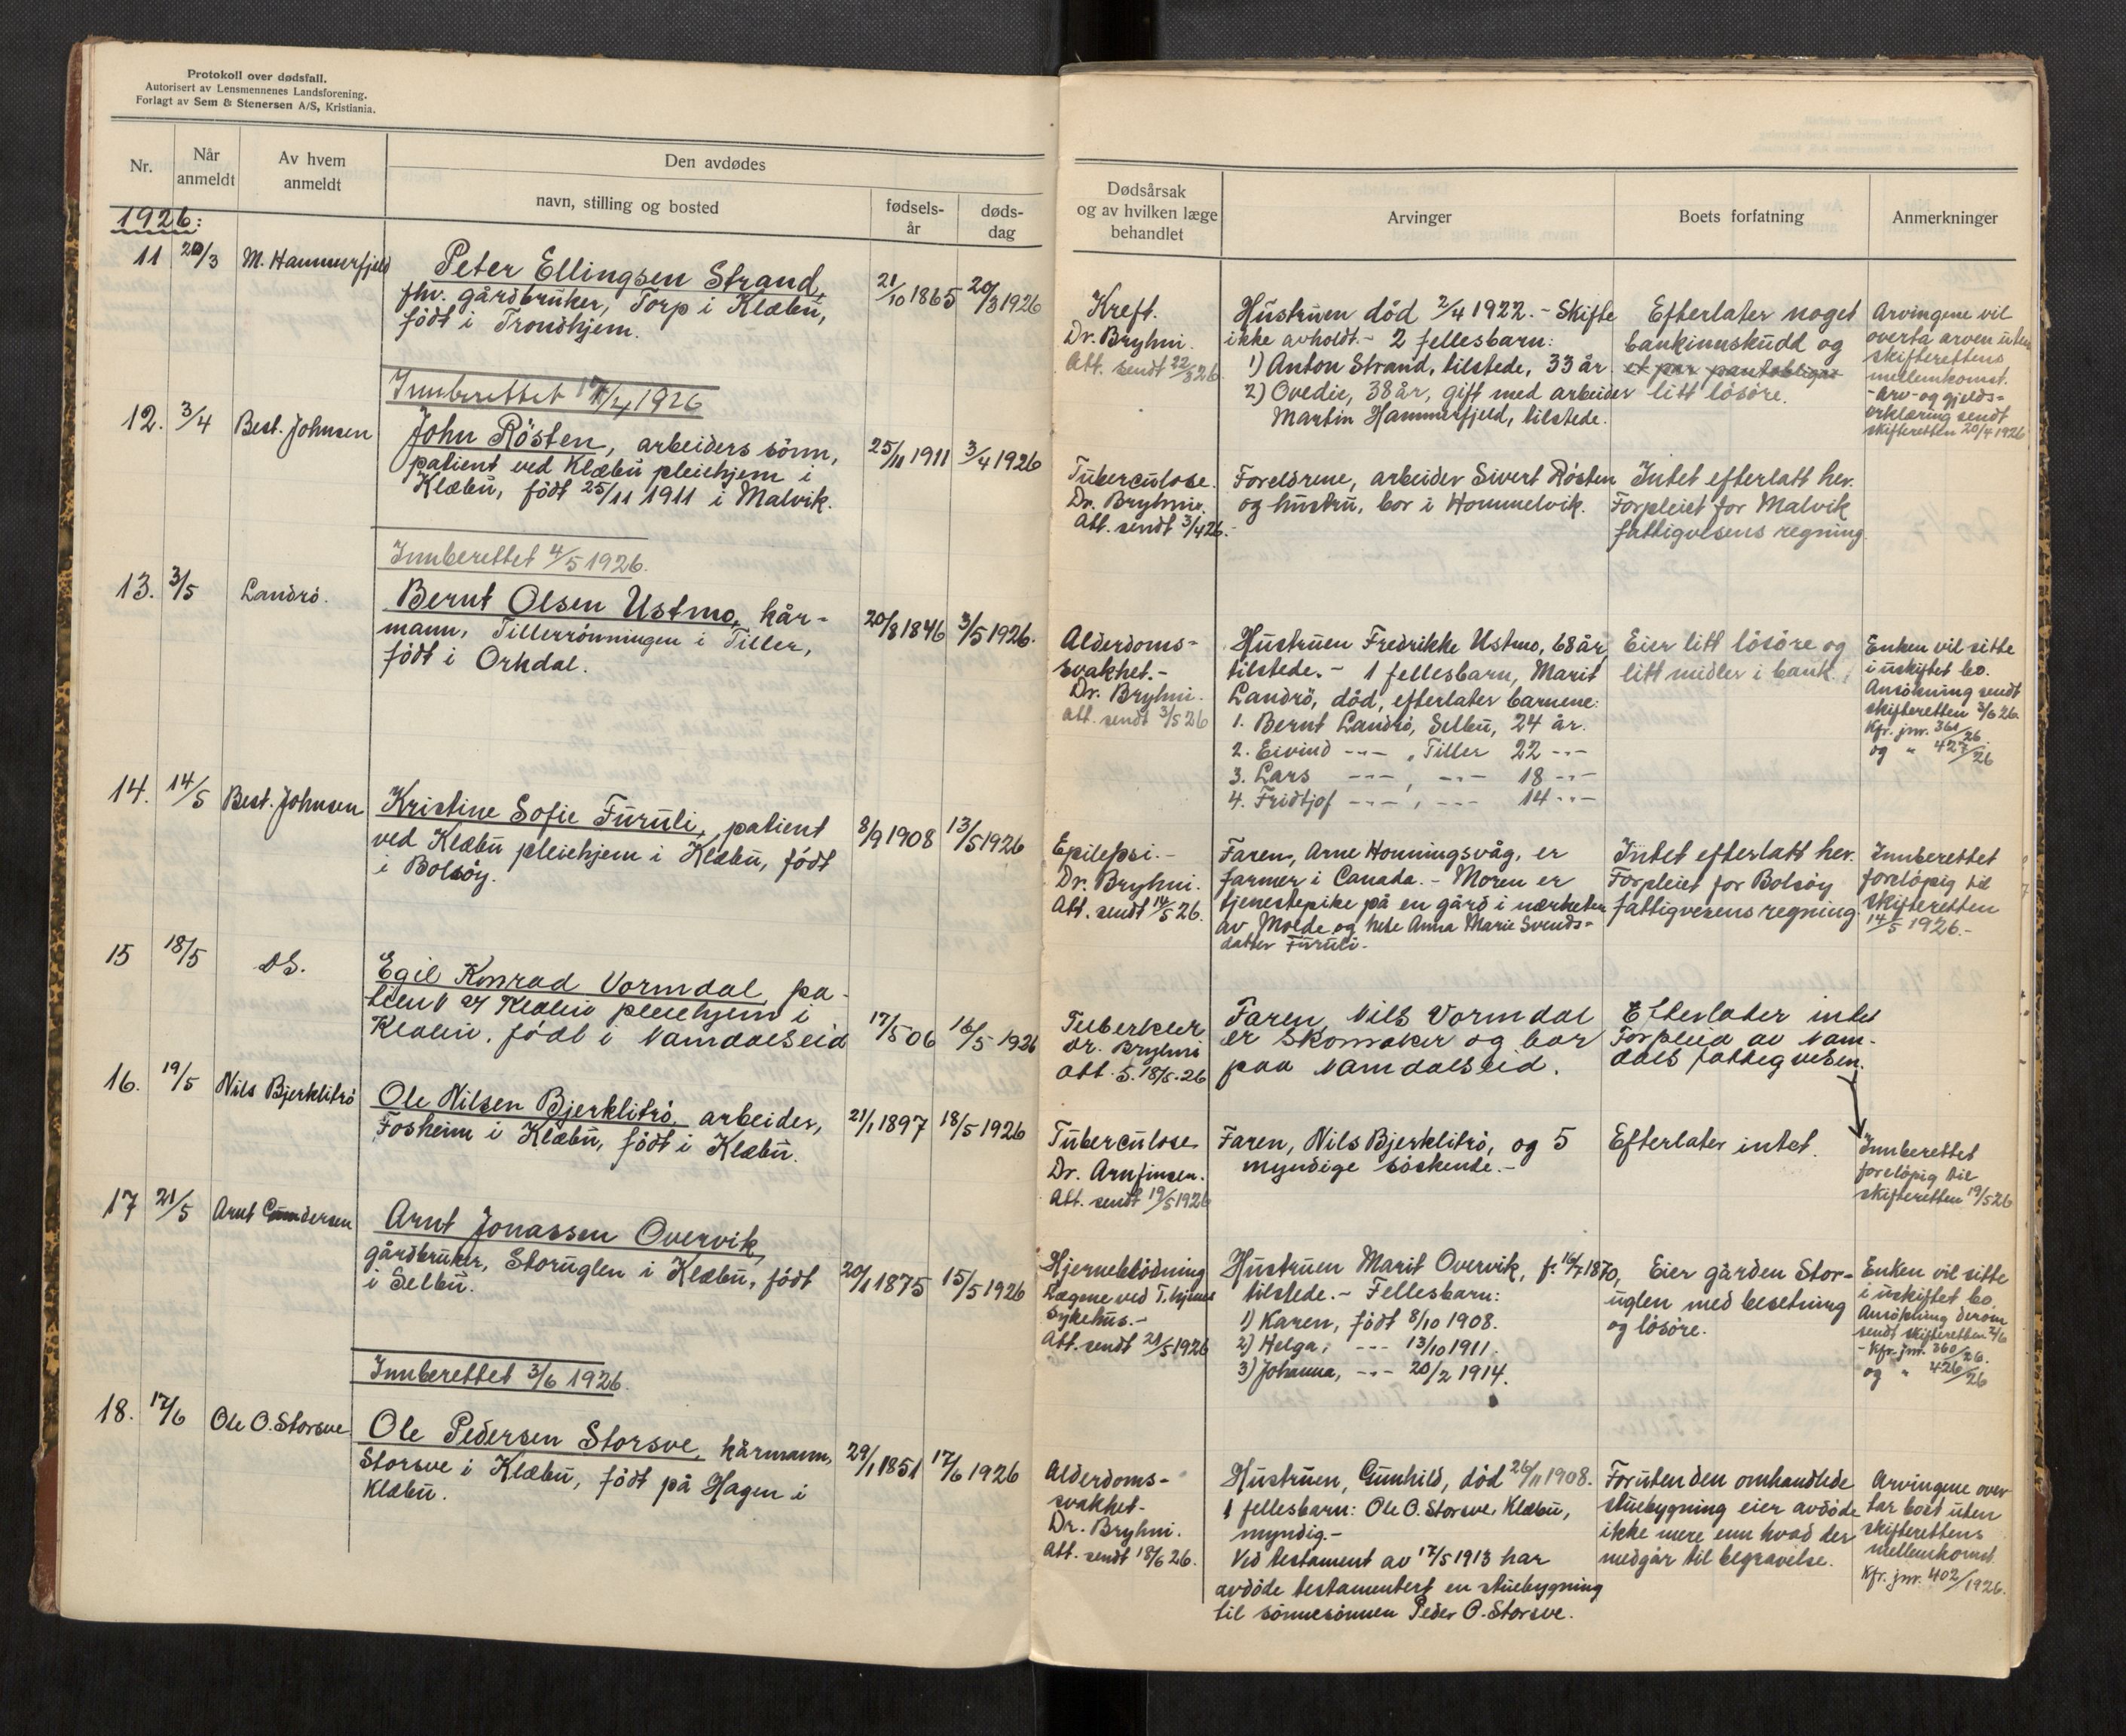 Protokoll over dødsfall.
Autorisert av Lensmennenes Landsforening.
Forlagt av Sem & Stenersen A/S, Kristiania.
Nr.
Når
anmeldt
Av hvem
anmeldt
Den avdødes
navn, stilling og bosted
fødsels-
år
døds-
dag
Dødsårsak
og av hvilken læge
behandlet
Arvinger
Boets forfatning
Anmerkninger
1926:
11
20/3
M. Hammerfjeld
Peter Ellingsen Strand,
fhv. gårdbruker, Torp i Klæbu,
født i Trondhjem.
21/10 1865
20/3 1926
Kreft.
Dr. Bryhni.
Att. sendt 22/3 26
Hustruen död 2/4 1922. - Skifte
ikke avholdt. - 2 fellesbarn:
1) Anton Strand, tilstede, 33 år.
2) Ovedie, 38 år, gift med arbeider
Martin Hammerfjeld, tilstede.
Efterlater noget
bankinnskudd og
et par pantobligar
litt lösöre.
Arvingene vil
overta arven uten
skifterettens
mellemkomst.
- Arv- og gjelds-
erklæring sendt
skifteretten 20/4 1926
Innberettet 17/4 1926
12.
3/4
Best. Johnsen
John Rösten, arbeiders sönn,
patient ved Klæbu pleiehjem i
Klæbu, født 25/11 1911 i Malvik.
25/11 1911
3/4 1926
Tuberculose.
Dr. Bryhni.
Att. sendt 3/4 26.-
Foreldrene, arbeider Sivert Rösten
og hustru, bor i Hommelvik.
Intet efterlatt her.
Forpleiet for Malvik
fattigvesens regning.
Innberettet 4/5 1926.
13.
3/5
Landrö.
Bernt Olsen Ustmo, kår-
mann, Tillerrönningen i Tiller,
födt i Orkdal.
20/8 1846
3/5 1926.
Alderdoms-
svakhet.-
Dr. Bryhni.
Att. sendt 3/5 26
Hustruen Fredrikke Ustmo, 68 år,
tilstede. - 1 fellesbarn, Marit
Landrö, död, efterlater barnene:
1. Bernt Landrö, Selbu, 24 år.
2. Eivind -"- , Tiller 22 -"-
3. Lars -"- , -"- 18 -"-
4. Fridtjof -"- , -"- 14 -"-
Eier litt lösöre og
litt midler i bank.
Enken vil sitte
i uskiftet bo.
Ansökning sendt
skifteretten 3/6 26.
Kfr. jnr. 361/26.
og " 427/26
14.
14/5
Best. Johnsen
Kristine Sofie Furuli, patient
ved Klæbu pleiehjem i Klæbu, født
i Bolsöy.
8/9 1908
13/5 1926
Epilepsi.-
Dr. Bryhni.
Att. sendt 14/5 26.
Faren, Arne Honningsvåg, er
farmer i Canada. - Moren er
tjenestepike på en gård i nærheten
av Molde og hete Anna Marie Svends-
datter Furuli.
Intet efterlatt her.
Forpleiet for Bolsöy
fattigvesens regning.
Innberettet
foreløpig til
skifteretten
14/5 1926.-
15
18/5
DS.
Egil Konrad Vormdal, pa-
tient af Klæbu pleiehjem i
Klæbu, född i Namdalseid
17/5 06
16/5 1926
Tuberkler
Dr. Bryhni
Att. S. 18/5. 26
Faren, Nils Vormdal
er Skomaker og bor
paa Namdalseid.
Efterlater intet
Forpleid av Nam-
dals fattigvesen.
16.
19/5
Nils Bjerklitrö
Ole Nilsen Bjerklitrö, arbeider,
Fosheim i Klæbu, født i Klæbu.
21/1 1897
18/5 1926
Tuberculose
Dr. Arnfinsen.
Att. sendt 19/5 1926
Faren, Nils Bjerklitrö, og 5
myndige söskende.-
Efterlater intet.
Innberettet
foreløpig til
skifteretten 19/5 26
17
21/5
Arnt Gundersen
Arnt Jonassen Overvik,
gårdbruker, Storuglen i Klæbu, født
i Selbu.
20/1 1875
15/5 1926
Hjerneblödning
Lægene ved T.hjems
sykehus.-
Att. sendt 21/5 1926
Hustruen Marit Overvik, f. 16/7 1870,
tilstede.- Fellesbarn:
1) Karen, født 8/10 1908.
2) Helga, -"- 13/10 1911.
3) Johanna, -"- 20/2 1914.
Eier gården Stor-
uglen med besetning
og lösöre.
Enken vil sitte
i uskiftet bo.
Ansökning derom
sendt skifteretten 2/6
- Kfr. jnr. 360/26.
og " 426/26
Innberettet 3/6 1926.
18.
17/6
Ole O. Storsve
Ole Pedersen Storsve, kårmann,
Storsve i Klæbu, født på Hagen i
Klæbu.
29/1 1851
17/6 1926
Alderdoms-
svakhet-
Dr. Bryhni.
Att. sendt 18/6 26.
Hustruen, Gunhild, död 26/11 1908.
1 fellesbarn: Ole O. Storsve, Klæbu,
myndig.-
Ved testament av 17/5 1913 har
avdöde testamentert en stuebygning
til sönnesönnen Peder O. Storsve.
Foruten den omhandlede
stuebygning eier avdöde
ikke mere enn hvad der
medgår til begravelse.
Arvingene over
tar boet uten
skifterettens
mellemkomst.
Kfr. jnr. 402/1926.